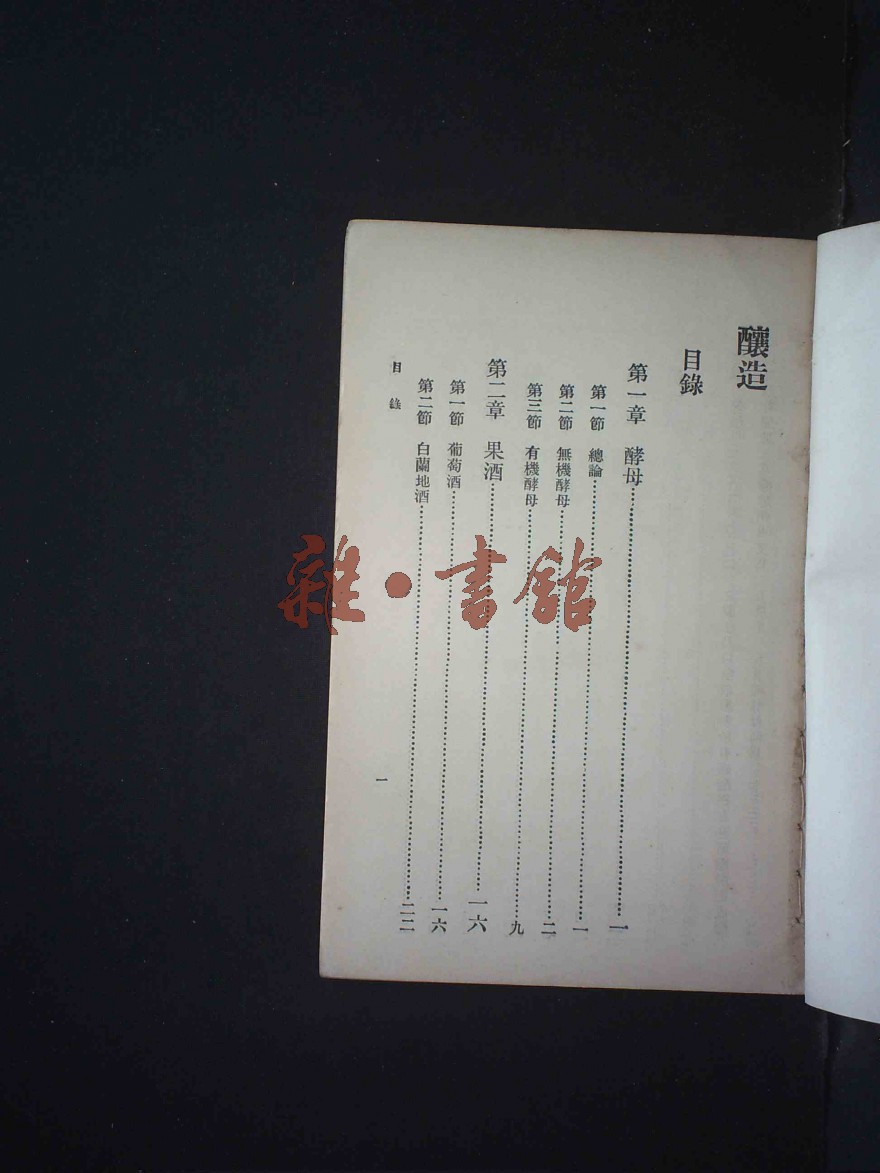 釀造
目錄
第一章 酵母……一
第一節 總論……一
第二節 無機酵母……二
第三節 有機酵母……九
第二章 果酒……一六
第一節 葡萄酒……一六
第二節 白蘭地酒……二二
目錄 一
雜·書館